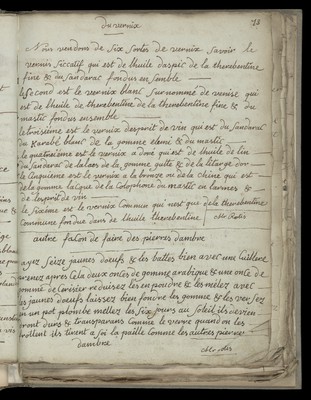 du vernix
Nous vendons de six sortes de vernix savoir le
vernis siccatif qui est de lhuile daspic de la therebentine
fine & du sandarac fondus ensemble
le Second est le vernix blanc surnommé de venise qui
est de lhuile de therebentine de la therebentine fine & du
mastic fondus ensemble
le troisieme est le vernix desprit de vin qui est du sandarac
du Karabé blanc de la gomme elemi & du mastic
le quatrieme est le vernix a doré qui est de lhuile de lin
du sandarac de laloes de la gomme gutte & de la litarge dor
le Cinquieme est le vernix a la bronze ou de la chine qui est
de la gomme lacque de la Colophone du mastic en larmes &
de lesprit de vin
le sixieme est le vernix Commun qui nest que de la therebentine
Commune fondue dans de lhuile therebentine
autre façon de faire des pierres dambre
ayez Seize jaunes doeufs & les battez bien avec une Cuillere
prenez apres Cela deux onces de gomme arabique & une once de
gomme de Cerisier reduisez les en poudre & les mélez avec
les jaunes doeufs laissez bien fondre les gomme & les versez
en un pot plombe mettez les six jours au Soleil ils devien
dront durs & transparans Comme le verre quand on les
frottent ils tirent a soi la paille Comme les autres pierres
dambre